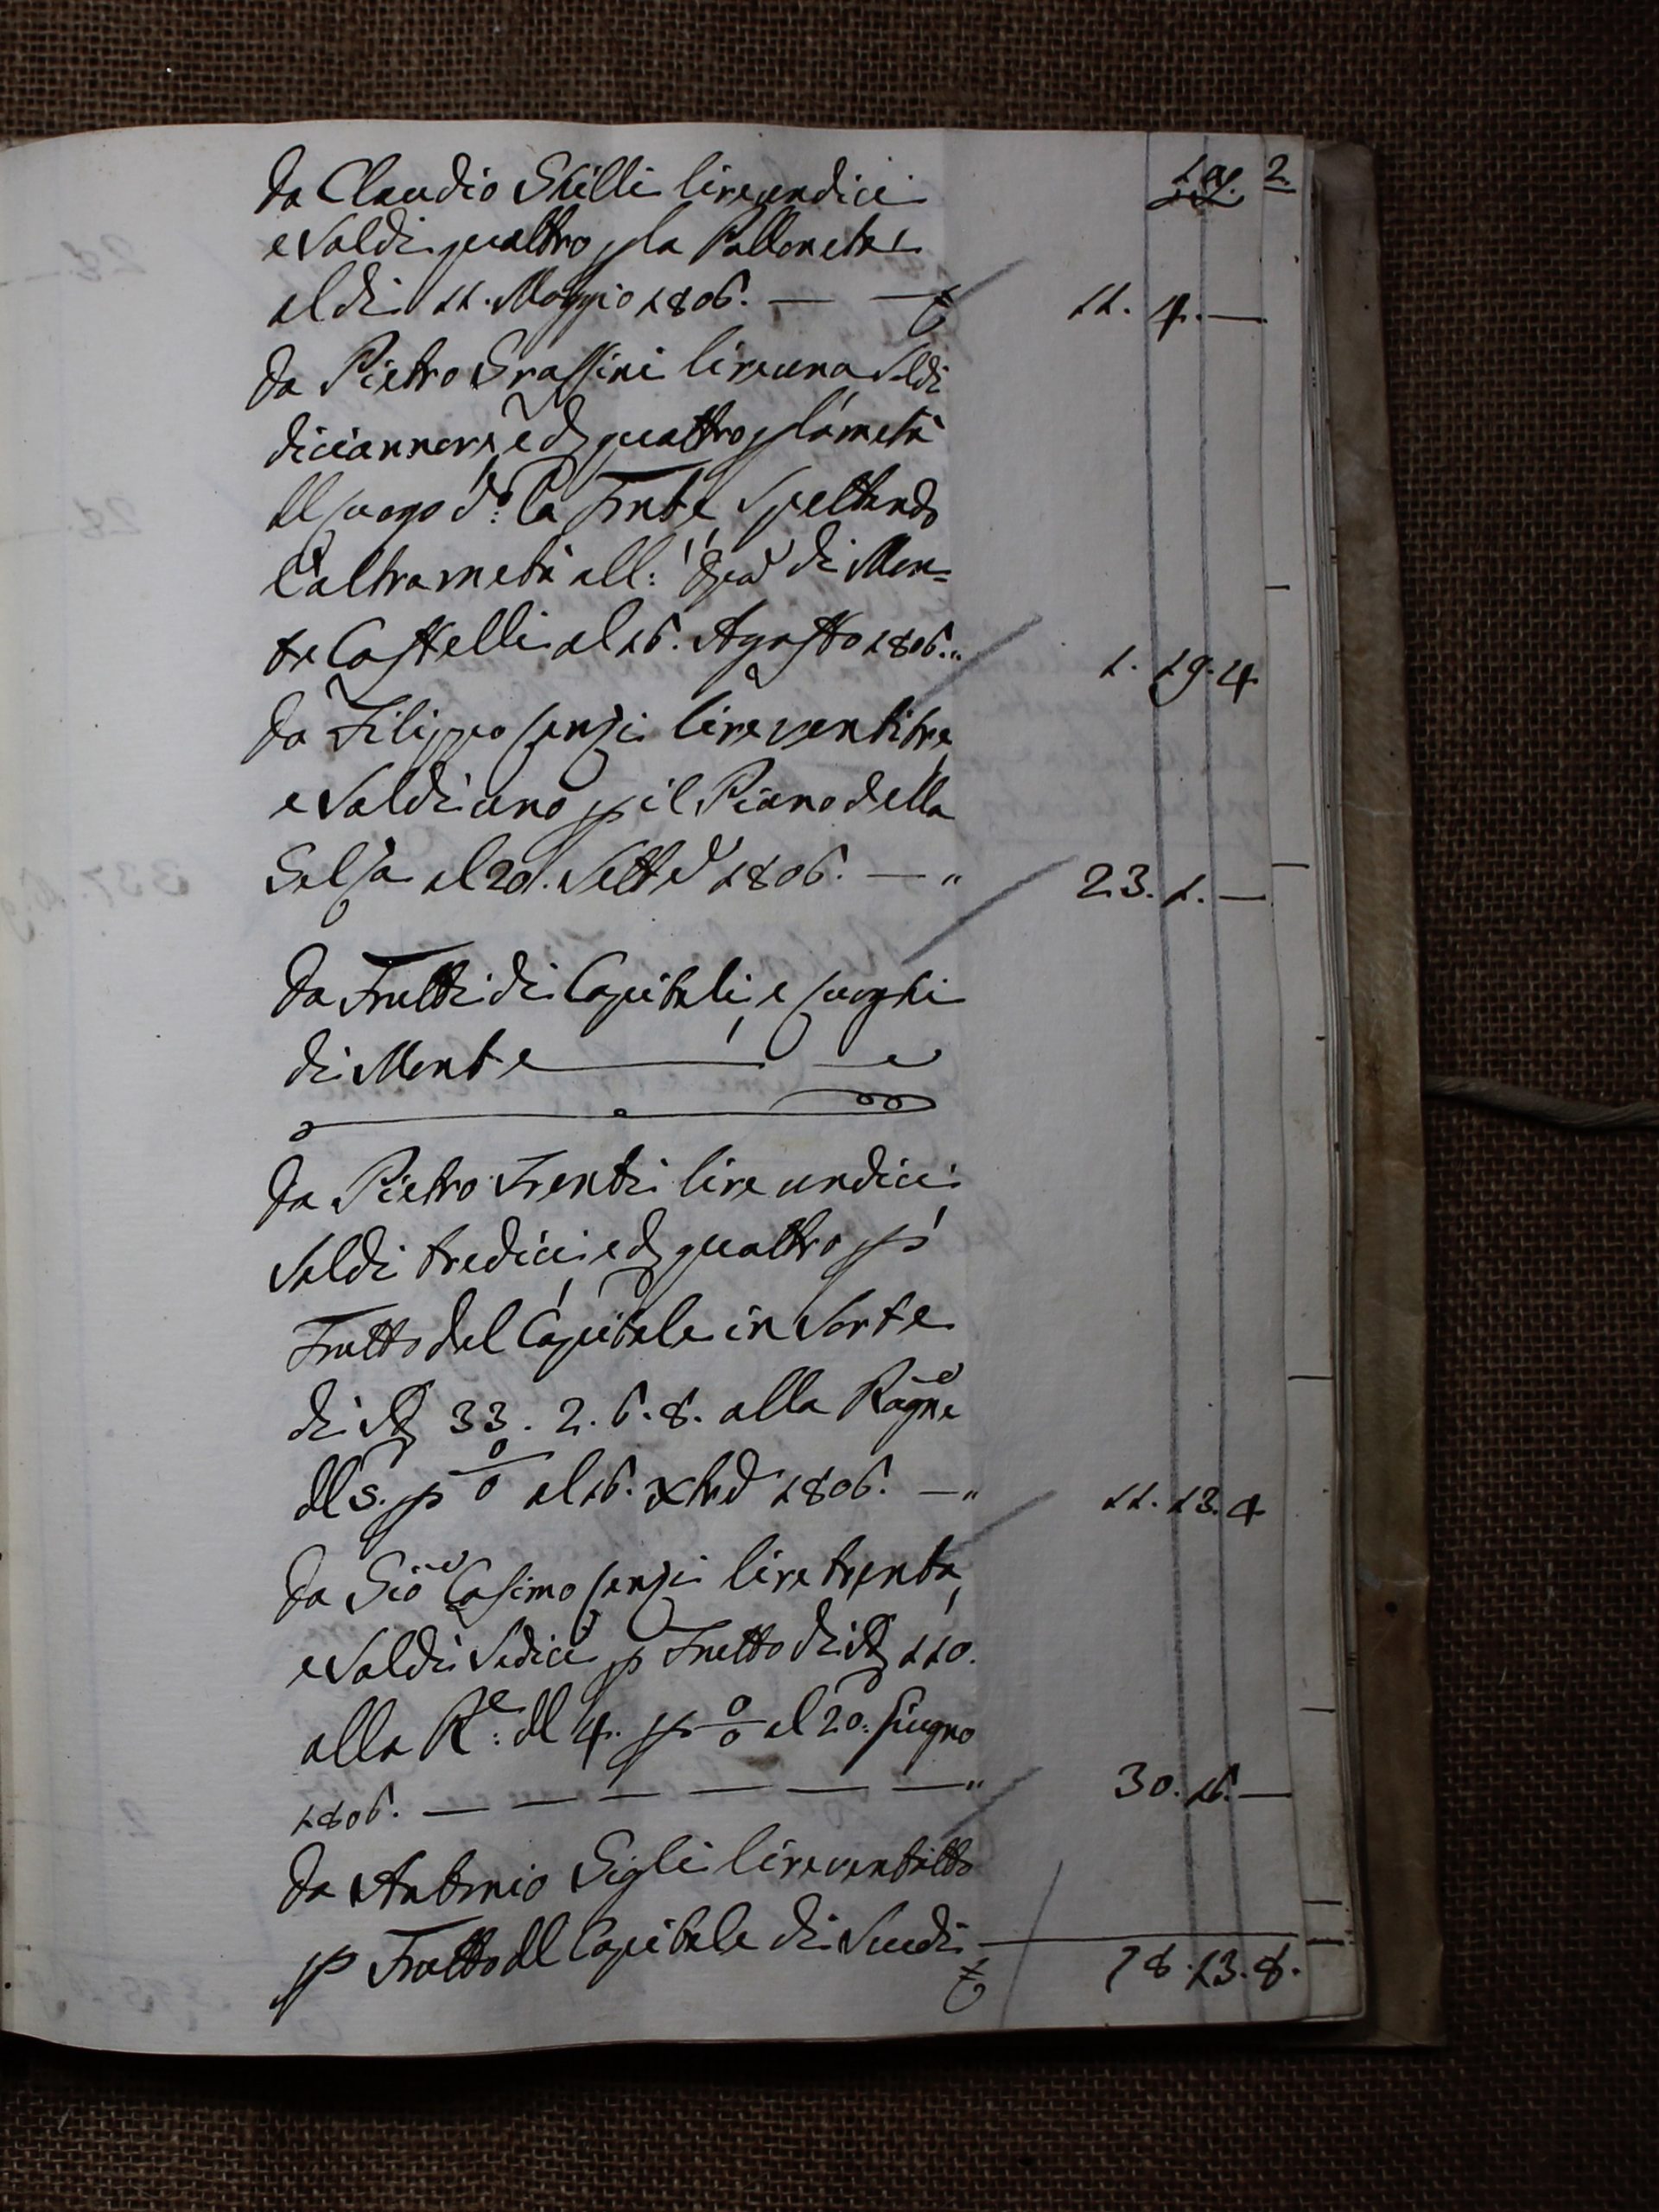 Lag. 2.
Da Claudio Stilli lire undici
e Soldi quattro p la Palloneta
al di 11. Maggio 1806. — — 11. 4. —
Da Pietro Grassini lire una Soldi
diciannove, e d quattro p la metà
del luogo do: la Fonte, Spettando
l'altra metà all: di Mon=
te Castelli al 16. Agosto 1806. „ 1. 19. 4
Da Filippo Lenzi lire ventitre
e Soldi uno p il Piano della
Salsa al 20. Settd 1806. — „ 23. 1. —
Da Frutti di Capitali, e Luoghi
di Monte
Da Pietro Trenti lire undici
Soldi tredici, e d quattro p
Frutto del Capitale in Sorte
di 33. 2. 6. 8. alla Ragne
del 5. p % al 16. Xbre 1806. — „ 11. 13. 4
Da Gio Casimo Lenzi lire trenta,
e Soldi Sedici p Frutto di 110.
alla Re: del 4. p % al 20. Giugno
1806. — — — — — — „ 30. 16. —
Da Antonio Gigli lire ventotto
p Frutto del Capitale di Scudi
78. 13. 8.